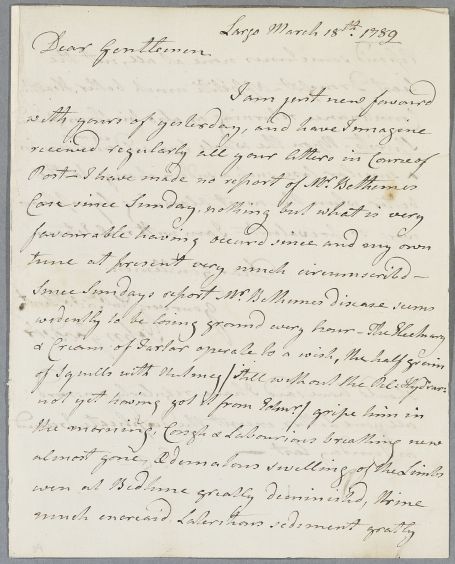 Largo March 18th. 1789
Dear Gentlemen
I am just now favoured
with yours of yesterday, and have I imagine
received regularly all your letters in Course of
Post – I have made no report of Mr. Bethunes
Case since Sunday, nothing but what is very
favourable having occurd since and my own
time at present very much circumscribd –
Since Sundays report Mr. Bethunes disease seems
evidently to be losing ground every hour – The Electuary
& Cream of Tartar operate to a wish, the half grain
of Squills with Nutmeg / still without the Pil: Hydrar:
not yet having got it from Edinr / gripe him in
the morning, Cough & Labourious breathing now
almost gone, Œdematous swelling of the Limbs
even at Bedtime greatly diminished, Urine
much encreasd Lateritous sediment greatly